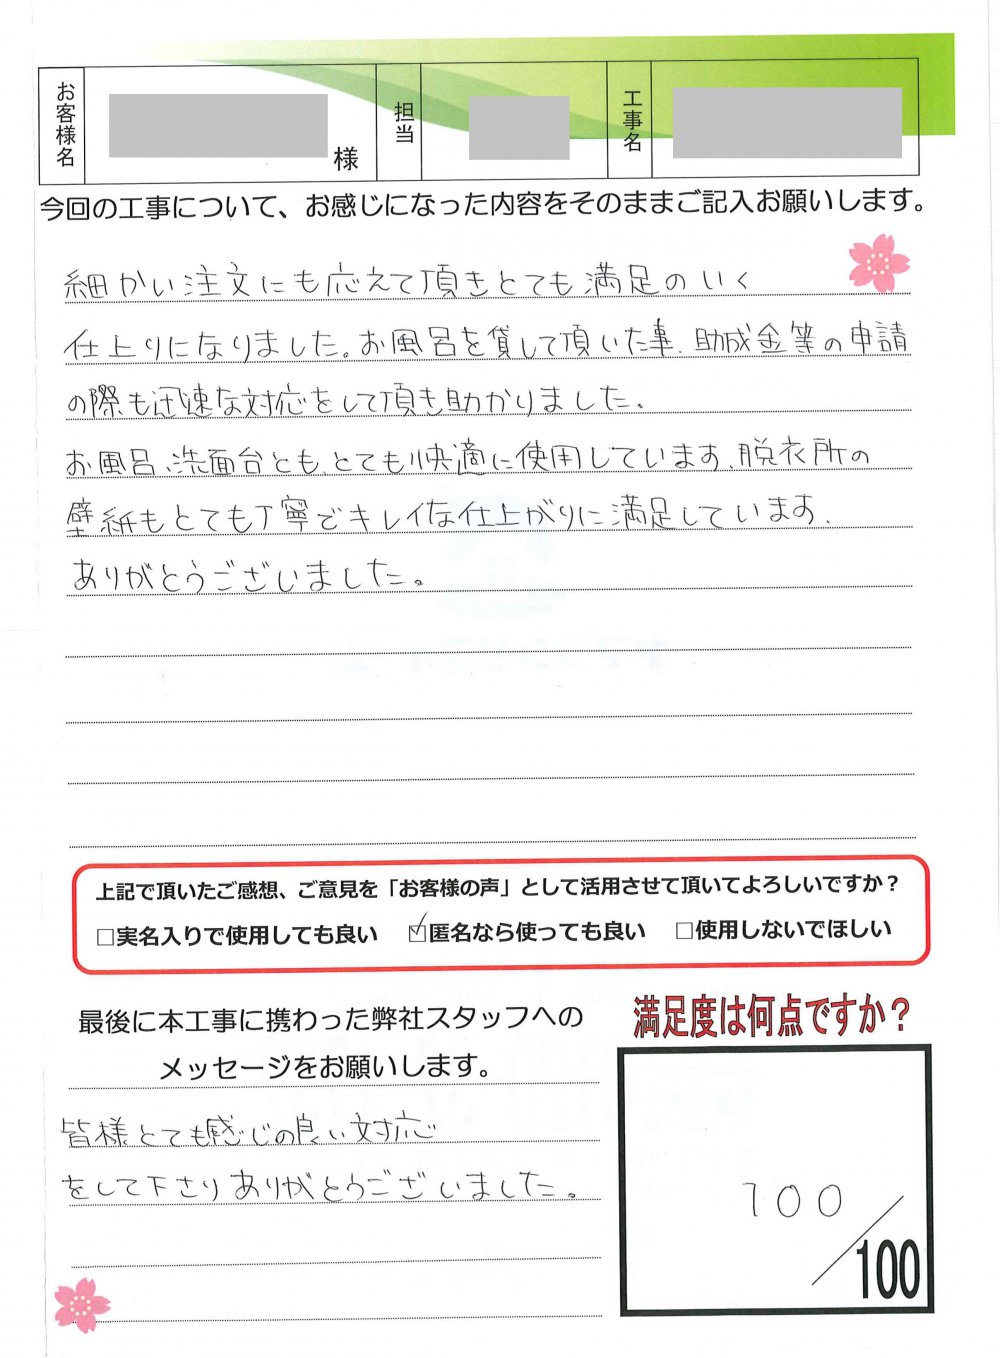 お客様名
様
担当
工事名
今回の工事について、お感じになった内容をそのままご記入お願いします。
細かい注文にも応えて頂きとても満足のいく
仕上りになりました。お風呂を貸して頂いた事、助成金等の申請
の際も迅速な対応をして頂き助かりました。
お風呂、洗面台とも、とても快適に使用しています、脱衣所の
壁紙もとても丁寧でキレイな仕上がりに満足しています、
ありがとうございました。
上記で頂いたご感想、ご意見を「お客様の声」として活用させて頂いてよろしいですか？
□実名入りで使用しても良い ☑匿名なら使っても良い □使用しないでほしい
最後に本工事に携わった弊社スタッフへの
メッセージをお願いします。
皆様とても感じの良い対応
をして下さりありがとうございました。
満足度は何点ですか？
100
／100